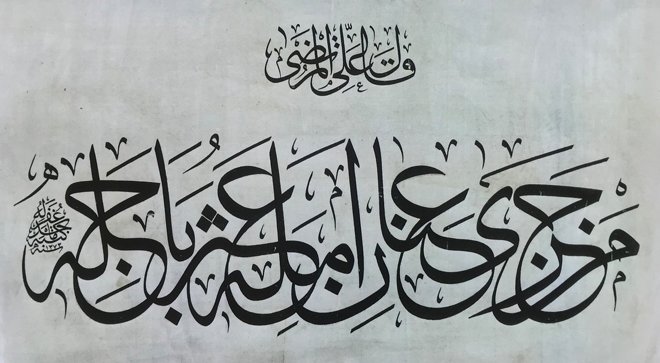 قال علي المرتضى
من جرى في عنان امله عثر باجله